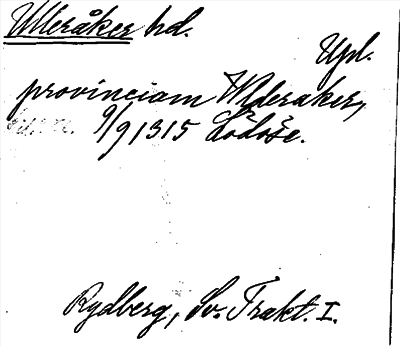 Ulleråker hd.
Upl.
provinciam Wlderaker,
9/9 1315 Lödöse.
Rydberg, Sv. Trakt. I.